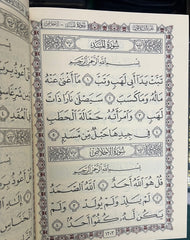 سُورَةُ المَسَد
بِسْمِ اللَّهِ الرَّحْمَٰنِ الرَّحِيمِ
تَبَّتْ يَدَا أَبِي لَهَبٍ وَتَبَّ ۝١ مَا أَغْنَىٰ عَنْهُ
مَالُهُ وَمَا كَسَبَ ۝٢ سَيَصْلَىٰ نَارًا ذَاتَ
لَهَبٍ ۝٣ وَامْرَأَتُهُ حَمَّالَةَ الْحَطَبِ
۝٤ فِي جِيدِهَا حَبْلٌ مِّن مَّسَدٍ ۝٥
سُورَةُ الإِخْلَاصِ
بِسْمِ اللَّهِ الرَّحْمَٰنِ الرَّحِيمِ
قُلْ هُوَ اللَّهُ أَحَدٌ ۝١ اللَّهُ الصَّمَدُ
۝٢ لَمْ يَلِدْ وَلَمْ يُولَدْ ۝٣ وَلَمْ
يَكُن لَّهُ كُفُوًا أَحَدٌ ۝٤